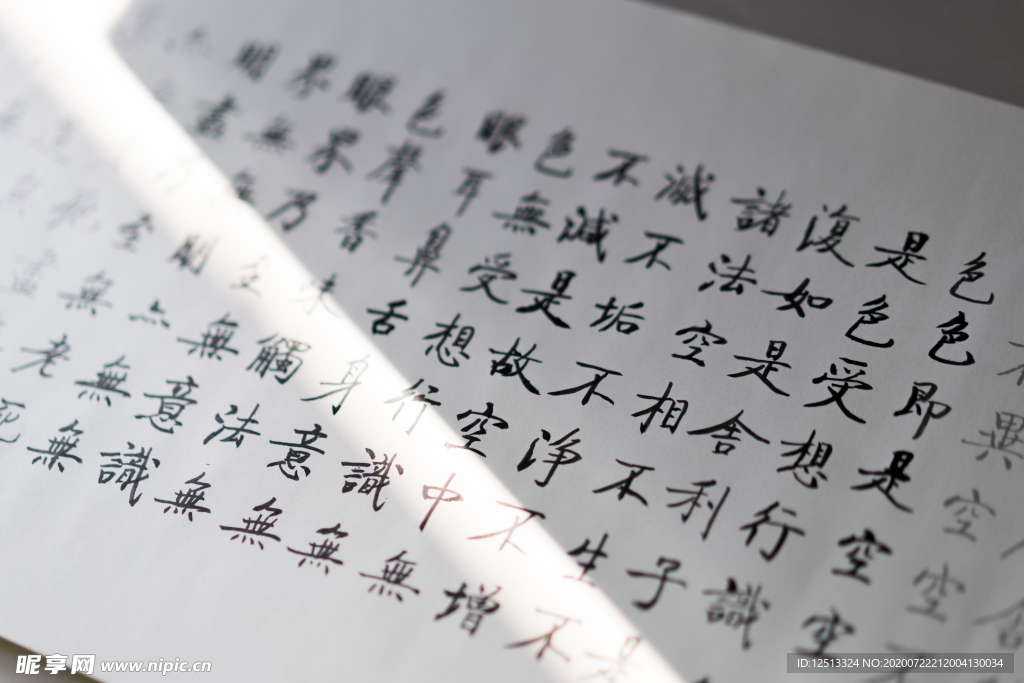 不異空空不
色色即是空空
是色受想行識
復如是舍利子是
諸法空相不生不
滅不垢不淨不增
不滅是故空中無
色無受想行識無
眼耳鼻舌身意無
色聲香味觸法無
眼界乃至無意識
界無無明亦無無
明盡乃至無老死
昵享网 www.nipic.cn
ID:12513324 NO:20200722212004130034